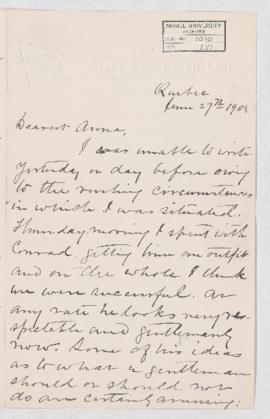 McGILL UNIVERSITY
ARCHIVES
ACC. NO. 1010
REF.
ALLAN ROYAL MAIL LINE
Quebec
June 27th 190
Dearest Anna,
I was unable to write
yesterday or day before owing
to the rushing circumstances
in which I was situated.
Thursday morning I spent with
Conrad, getting him an outfit
and on the whole I think
we were successful. At
any rate he looks very res-
pectable and gentlemanly
now. Some of his ideas
as to what a gentleman
should or should not
do are certainly amusing: